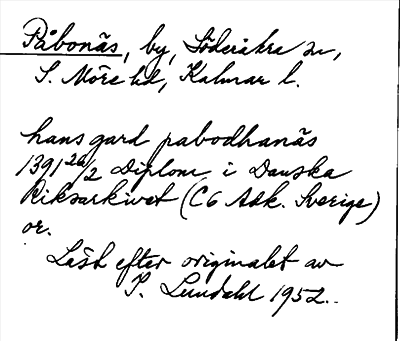 Påbonäs, by, Söderåkra sn,
S. Möre hd, Kalmar l.
hans gard pabodhanäs
1391 26/2 Diplom i Danska
Riksarkivet (C6 Adk. Sverige)
or.
Läst efter originalet av
P. Lundahl 1952.